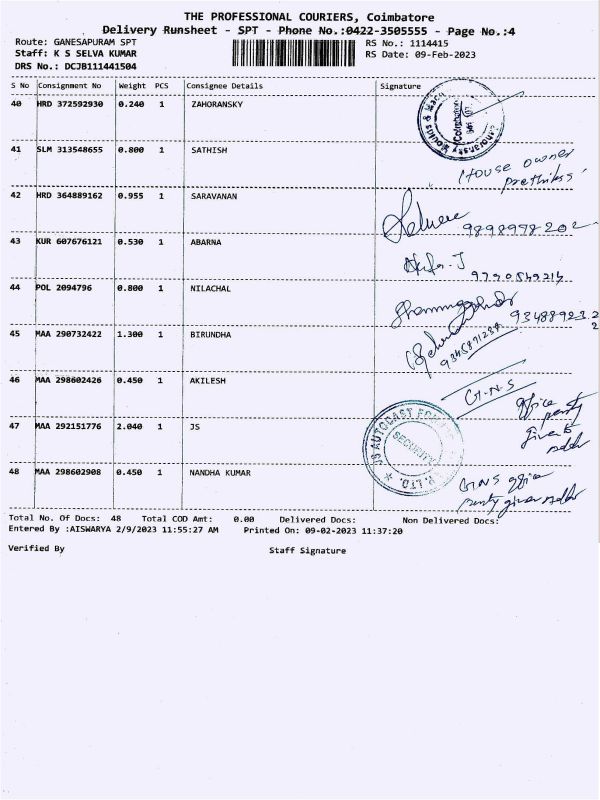 THE PROFESSIONAL COURIERS, Coimbatore
Delivery Runsheet - SPT - Phone No.:0422-3505555 - Page No.:4
Route: GANESAPURAM SPT RS No.: 1114415
Staff: K S SELVA KUMAR RS Date: 09-Feb-2023
DRS No.: DCJB111441504
S No Consignment No Weight PCS Consignee Details Signature
40 HRD 372592930 0.240 1 ZAHORANSKY
41 SLM 313548655 0.800 1 SATHISH
House owner
42 HRD 364889162 0.955 1 SARAVANAN
9898998202
43 KUR 607676121 0.530 1 ABARNA
44 POL 2094796 0.800 1 NILACHAL
45 MAA 290732422 1.300 1 BIRUNDHA
46 MAA 298602426 0.450 1 AKILESH
G.N.S office
47 MAA 292151776 2.040 1 JS
JS AUTOCAST P. LTD.
SECURITY
48 MAA 298602908 0.450 1 NANDHA KUMAR
GNS office
Total No. Of Docs: 48 Total COD Amt: 0.00 Delivered Docs: Non Delivered Docs:
Entered By :AISWARYA 2/9/2023 11:55:27 AM Printed On: 09-02-2023 11:37:20
Verified By Staff Signature